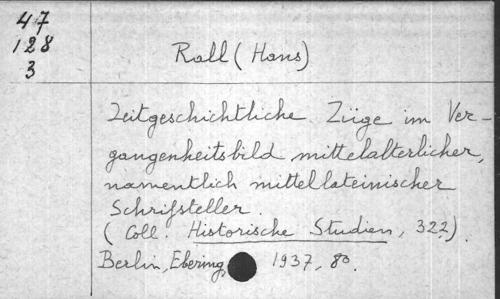 47
128
3
Rall (Hans)
Zeitgeschichtliche Züge im Ver-
gangenheitsbild mittelalterlicher,
namentlich mittellateinischer
Schriftsteller.
(Coll. Historische Studien, 322).
Berlin, Ebering, 1937, 8º.